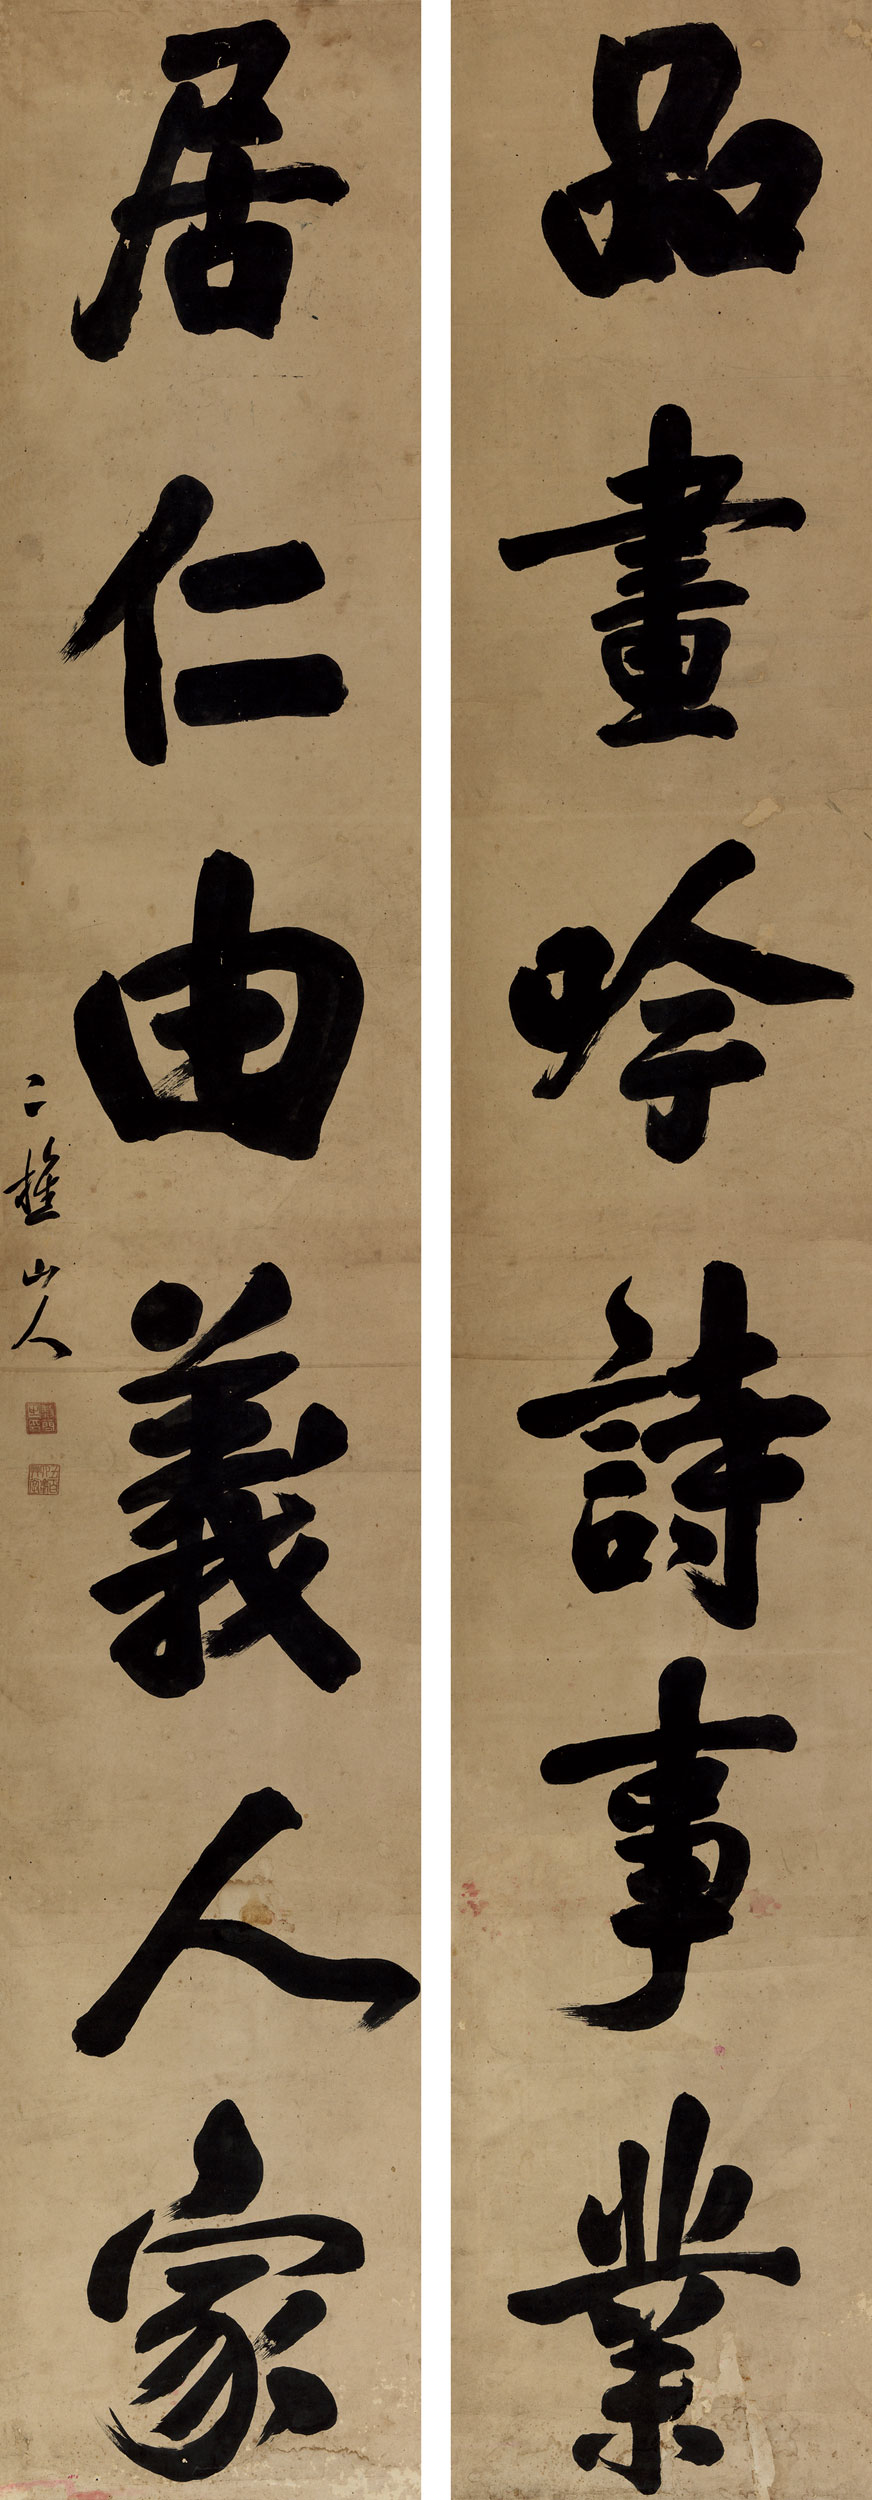 品畫吟詩事業
居仁由義人家
二樵山人